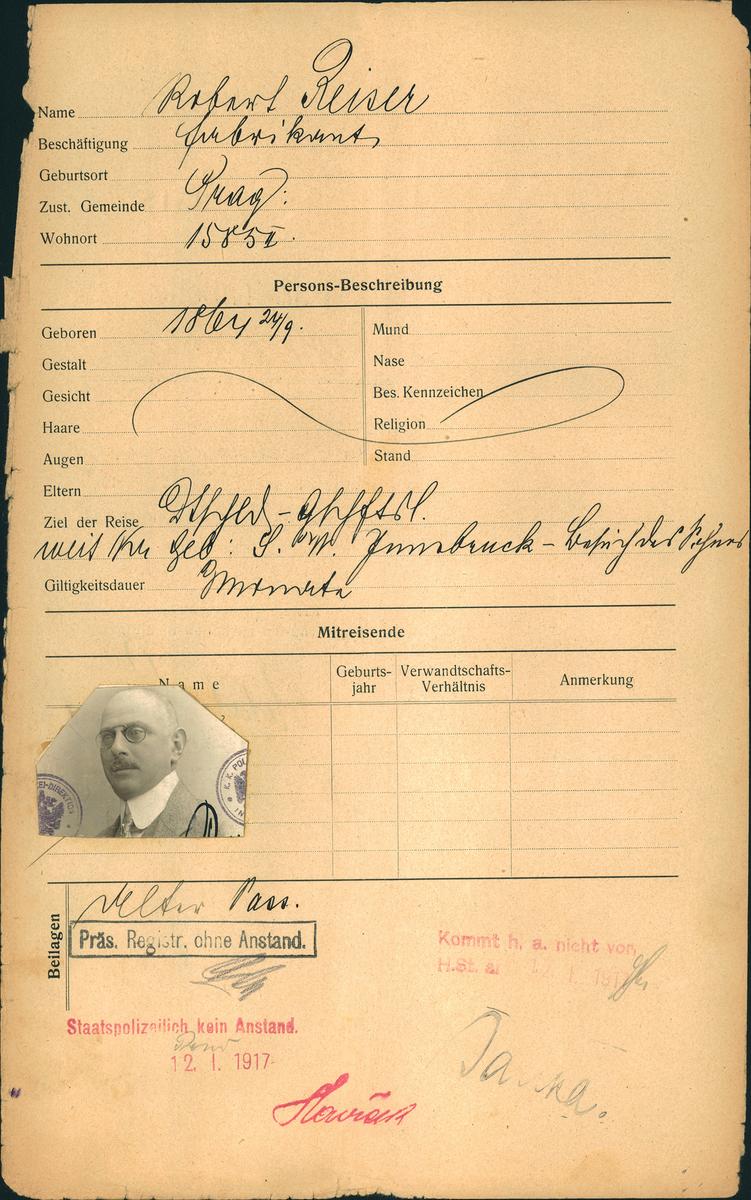 Name Robert Reiser
Beschäftigung Fabrikant
Geburtsort
Zust. Gemeinde Prag:
Wohnort 1585 II.
Persons-Beschreibung
Geboren
Mund
Gestalt
Nase
Gesicht
Bes. Kennzeichen
Haare
Religion
Augen
Stand
Eltern
Ziel der Reise Dtschld - Gschftsl.
Innsbruck - Besuch des Sohnes
Giltigkeitsdauer Monate
Mitreisende
Name
Geburts-
jahr
Verwandtschafts-
Verhältnis
Anmerkung
Beilagen
Alter Pass.
Präs. Registr. ohne Anstand.
Kommt h. a. nicht vor,
H.St. a
Staatspolizeilich kein Anstand.
12. I. 1917